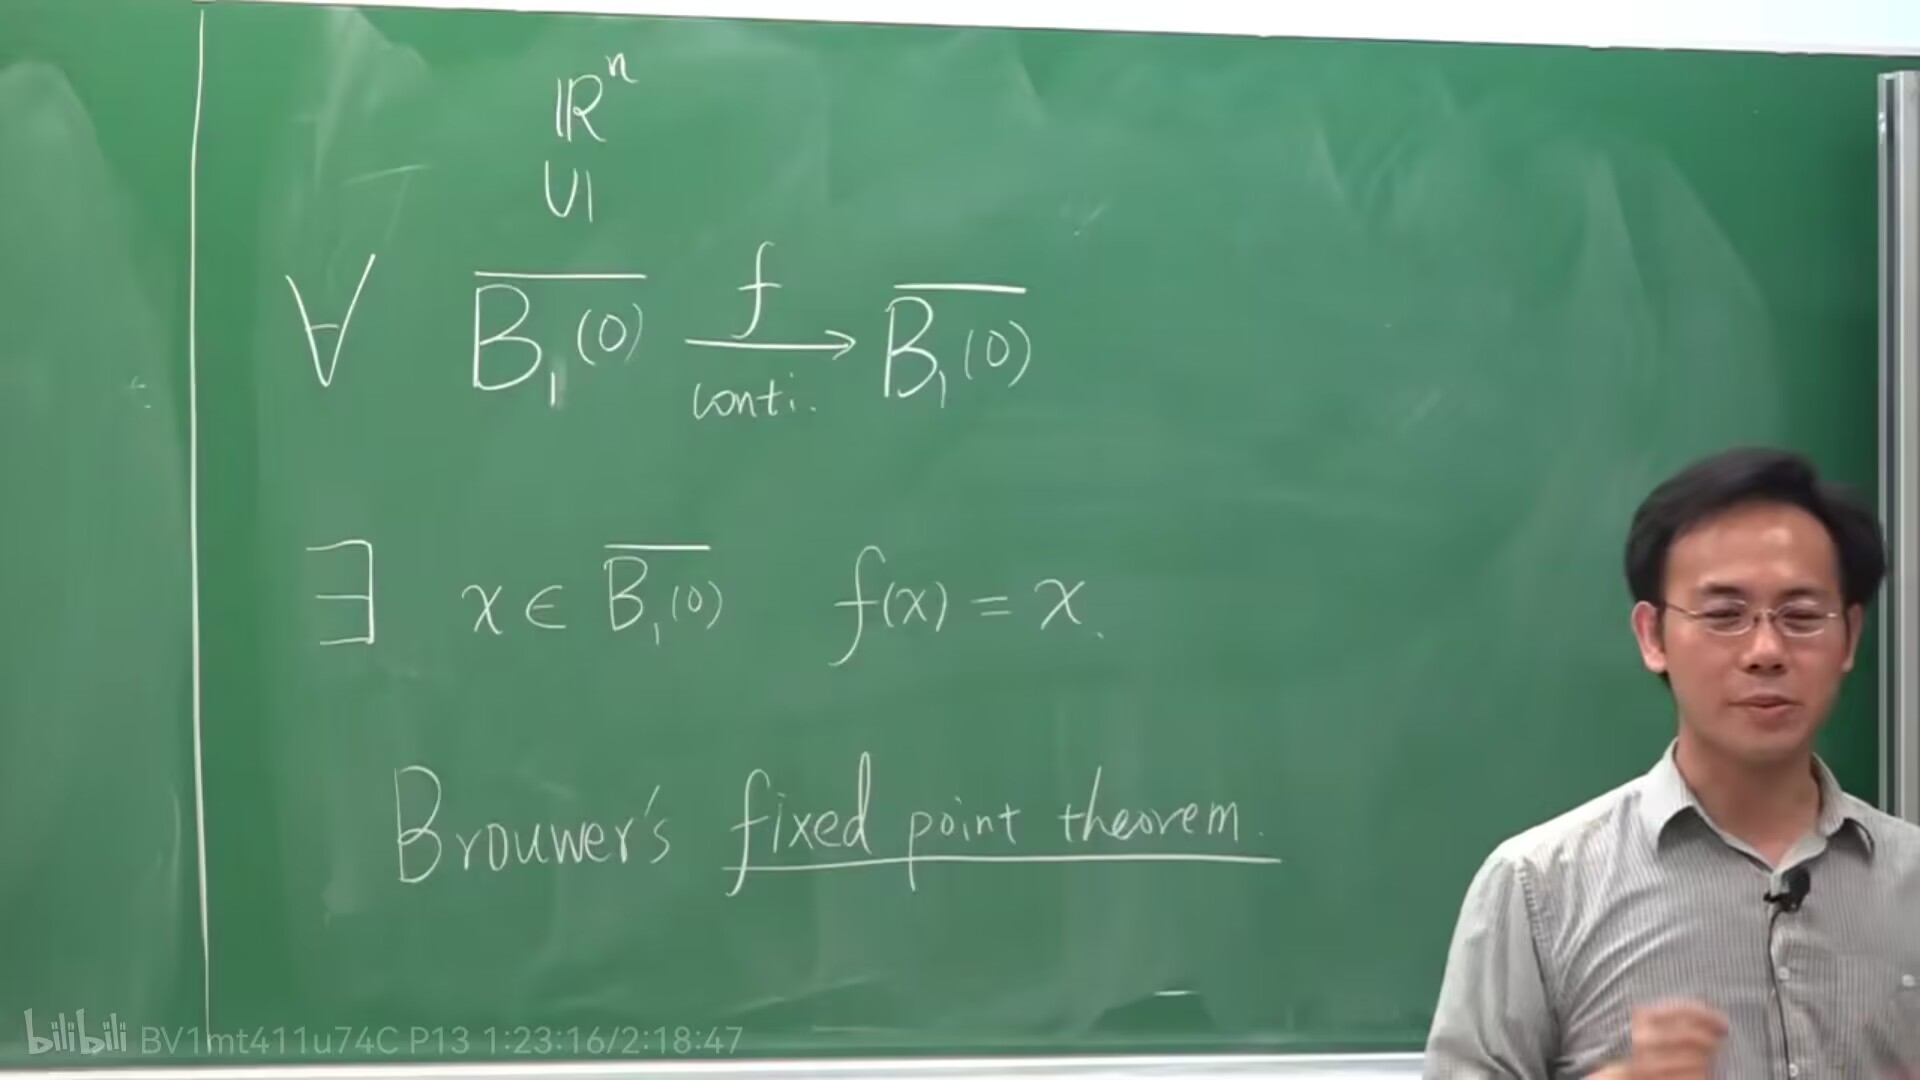 ℝⁿ
∪|
∀ B̅₁(0) f→ B̅₁(0)
conti.
∃ x ∈ B̅₁(0) f(x) = x.
Brouwer's fixed point theorem.
bilibili BV1mt411u74C P13 1:23:16/2:18:47